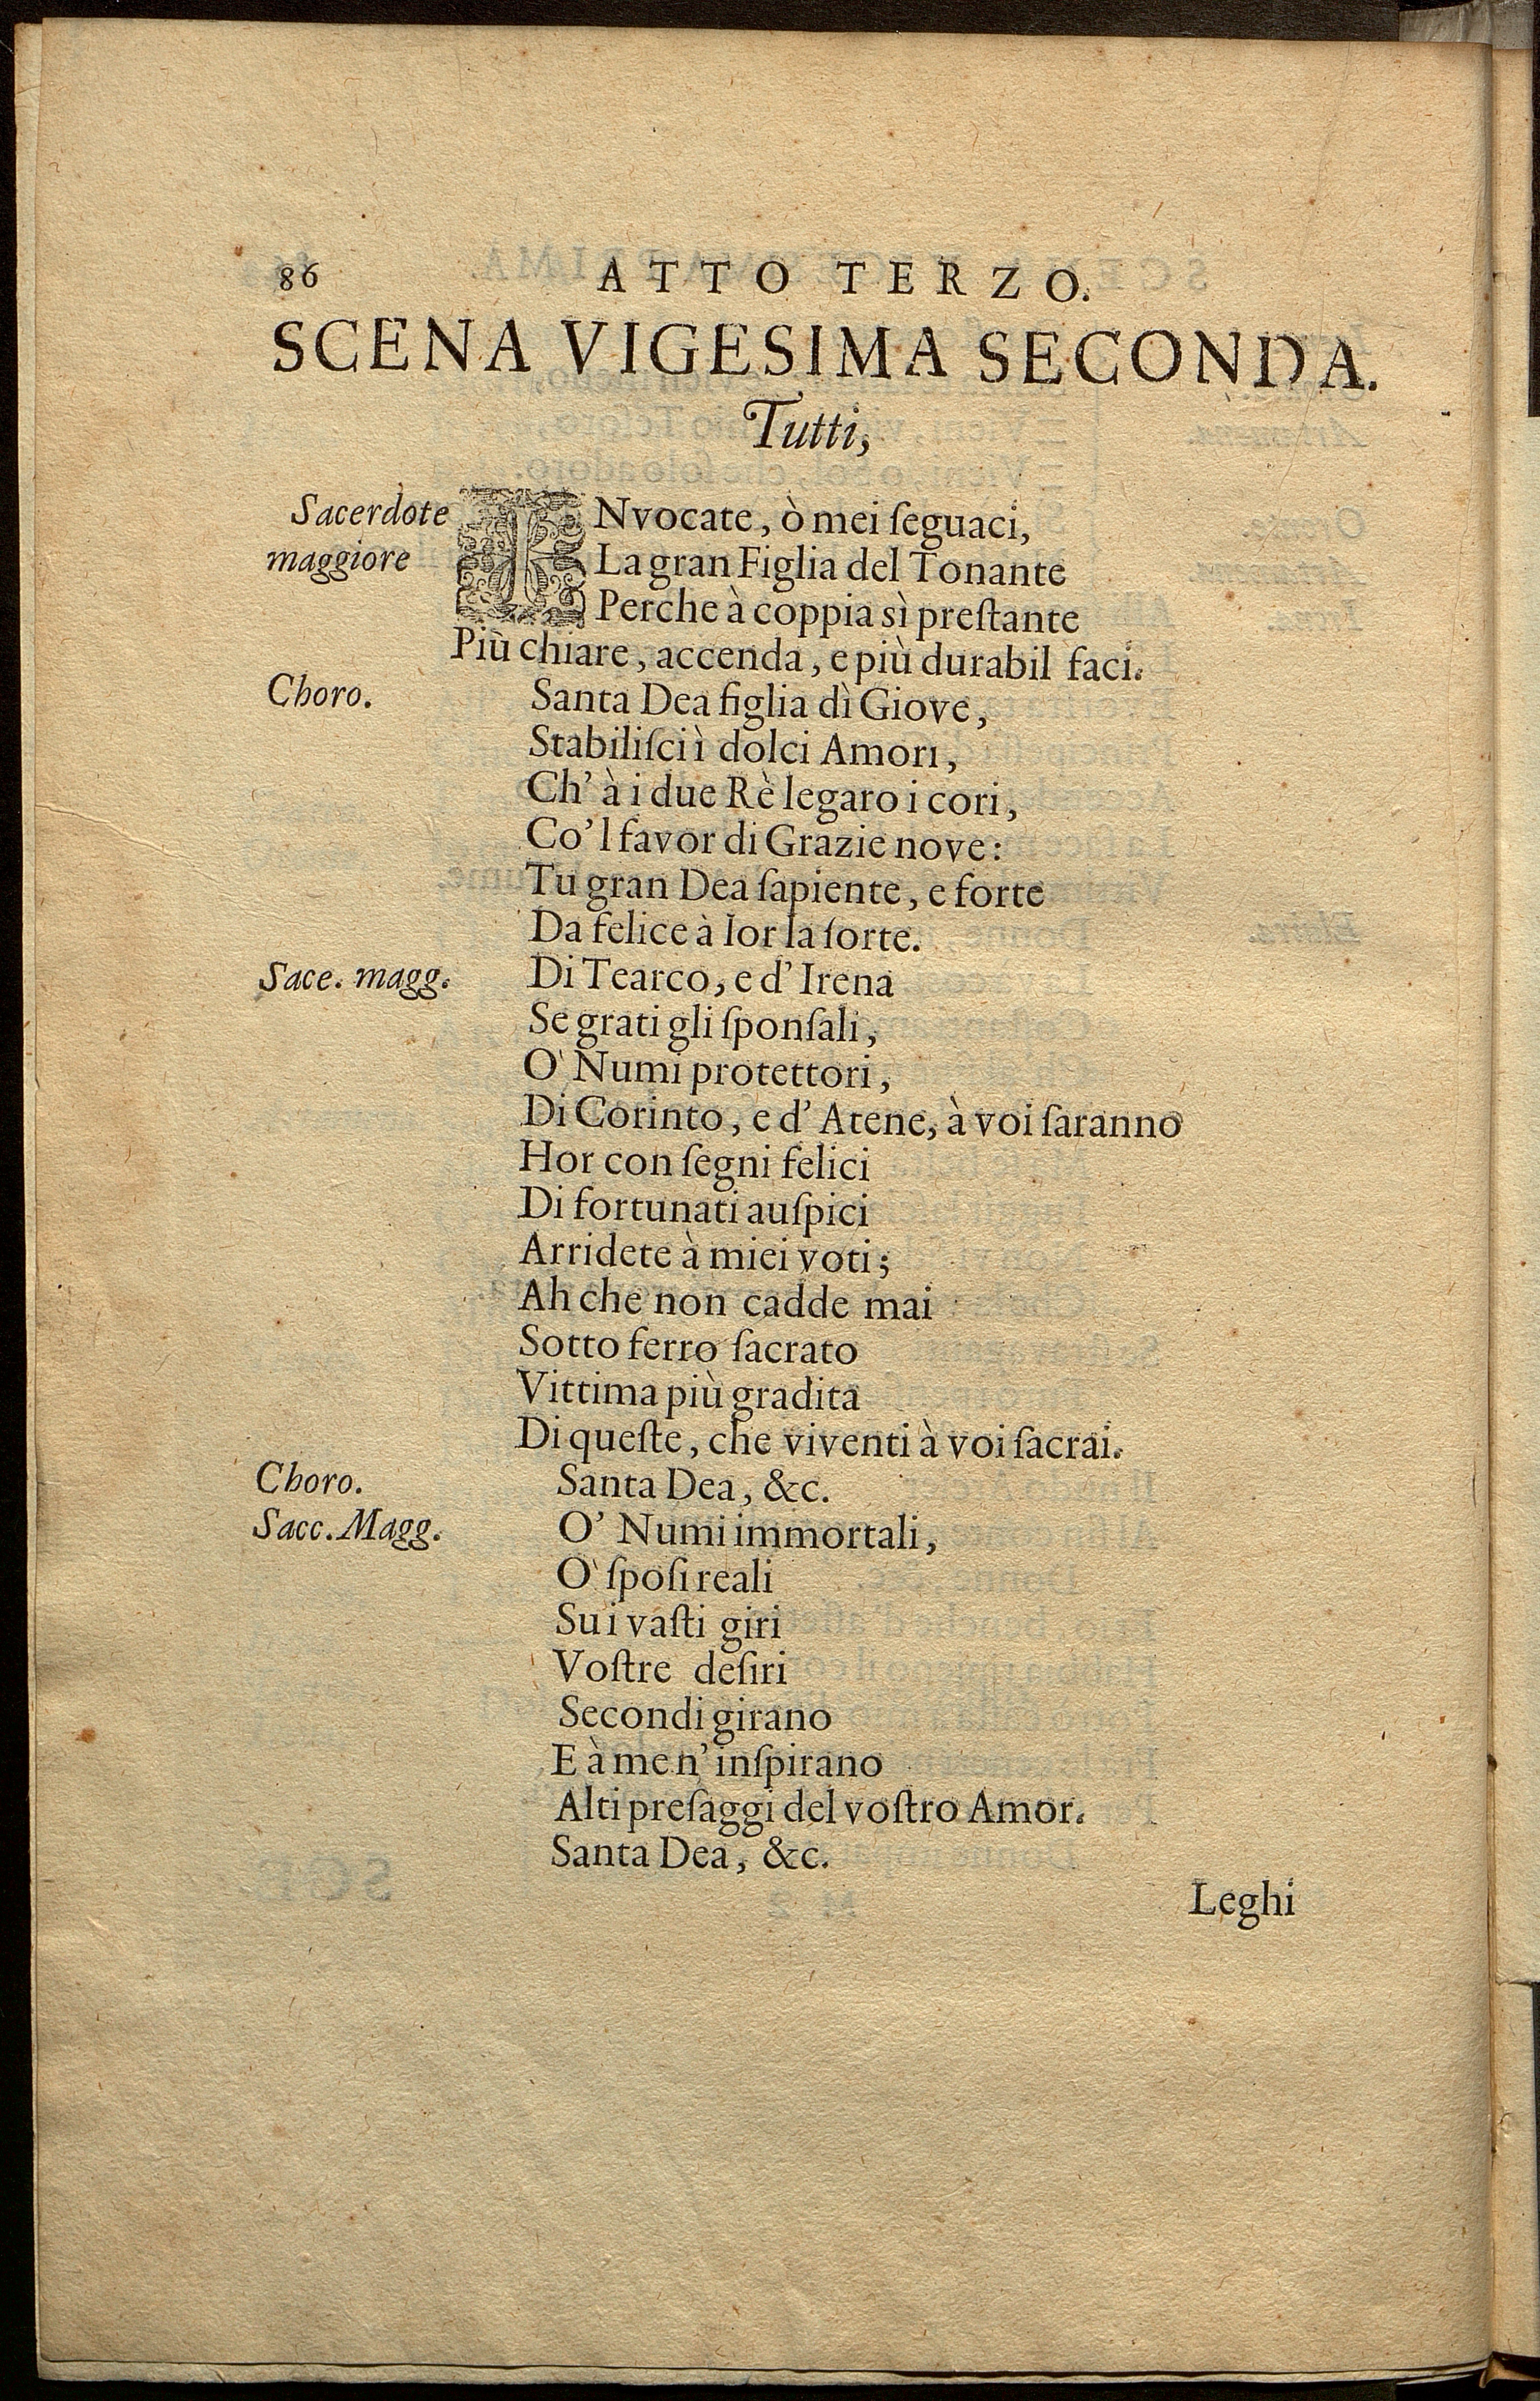 86 ATTO TERZO.
SCENA VIGESIMA SECONDA.
Tutti,
Sacerdote INvocate, ò mei ſeguaci,
maggiore La gran Figlia del Tonante
Perche à coppia sì preſtante
Più chiare, accenda, e più durabil faci.
Choro. Santa Dea figlia dì Giove,
Stabiliſci ì dolci Amori,
Ch' à i due Rè legaro i cori,
Co'l favor di Grazie nove:
Tu gran Dea ſapiente, e forte
Da felice à lor la ſorte.
Sace. magg. Di Tearco, e d' Irena
Se grati gli ſponſali,
O' Numi protettori,
Di Corinto, e d' Atene, à voi ſaranno
Hor con ſegni felici
Di fortunati auſpici
Arridete à miei voti;
Ah che non cadde mai
Sotto ferro ſacrato
Vittima più gradita
Di queſte, che viventi à voi ſacrai.
Choro. Santa Dea, &c.
Sacc. Magg. O' Numi immortali,
O' ſpoſi reali
Su i vaſti giri
Voſtre deſiri
Secondi girano
E à me n' inſpirano
Alti preſaggi del voſtro Amor.
Santa Dea, &c.
Leghi